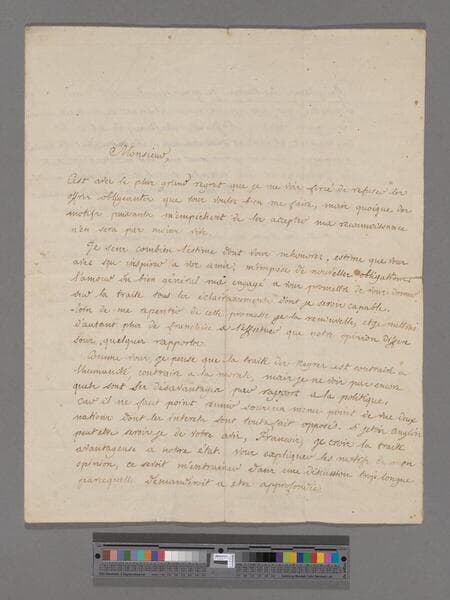 Monsieur,
C'est avec le plus grand regret que je me vois forcé de refuser les
offres obligeantes que vous voulez bien me faire, mais quoique des
motifs puissants m'empechent de les accepter ma reconnaissance
n'en sera pas moins vive.
Je sens combien l'estime dont vous m'honorez, estime que vous
avez sçu inspirer a vos amis, m'impose de nouvelles obligations
l'amour du bien général m'a engagé a vous promettre de vous donner
sur la traite tous les éclaircissements dont je serois capable.
loin de me repentir de cette promesse je la renouvelle, et je mettrai
d'autant plus de franchise a l'effectuer que notre opinion differe
sous quelques rapports.
Comme vous, je pense que la traite des Negres est contraire a
l'humanité contraire a la morale, mais je ne vois pas encore
quels sont ses désavantages par rapport a la politique,
car il ne faut point reunir sous un meme point de vue deux
nations dont les interets sont tout a fait opposés. Si j'etois Anglois
peut etre serois-je de votre avis, Francois, je crois la traite
avantageuse a notre état. Vous expliquer les motifs de mon
opinion, ce seroit m'entrainer dans une discussion trop longue
parcequ'elle demanderoit a etre approfondie